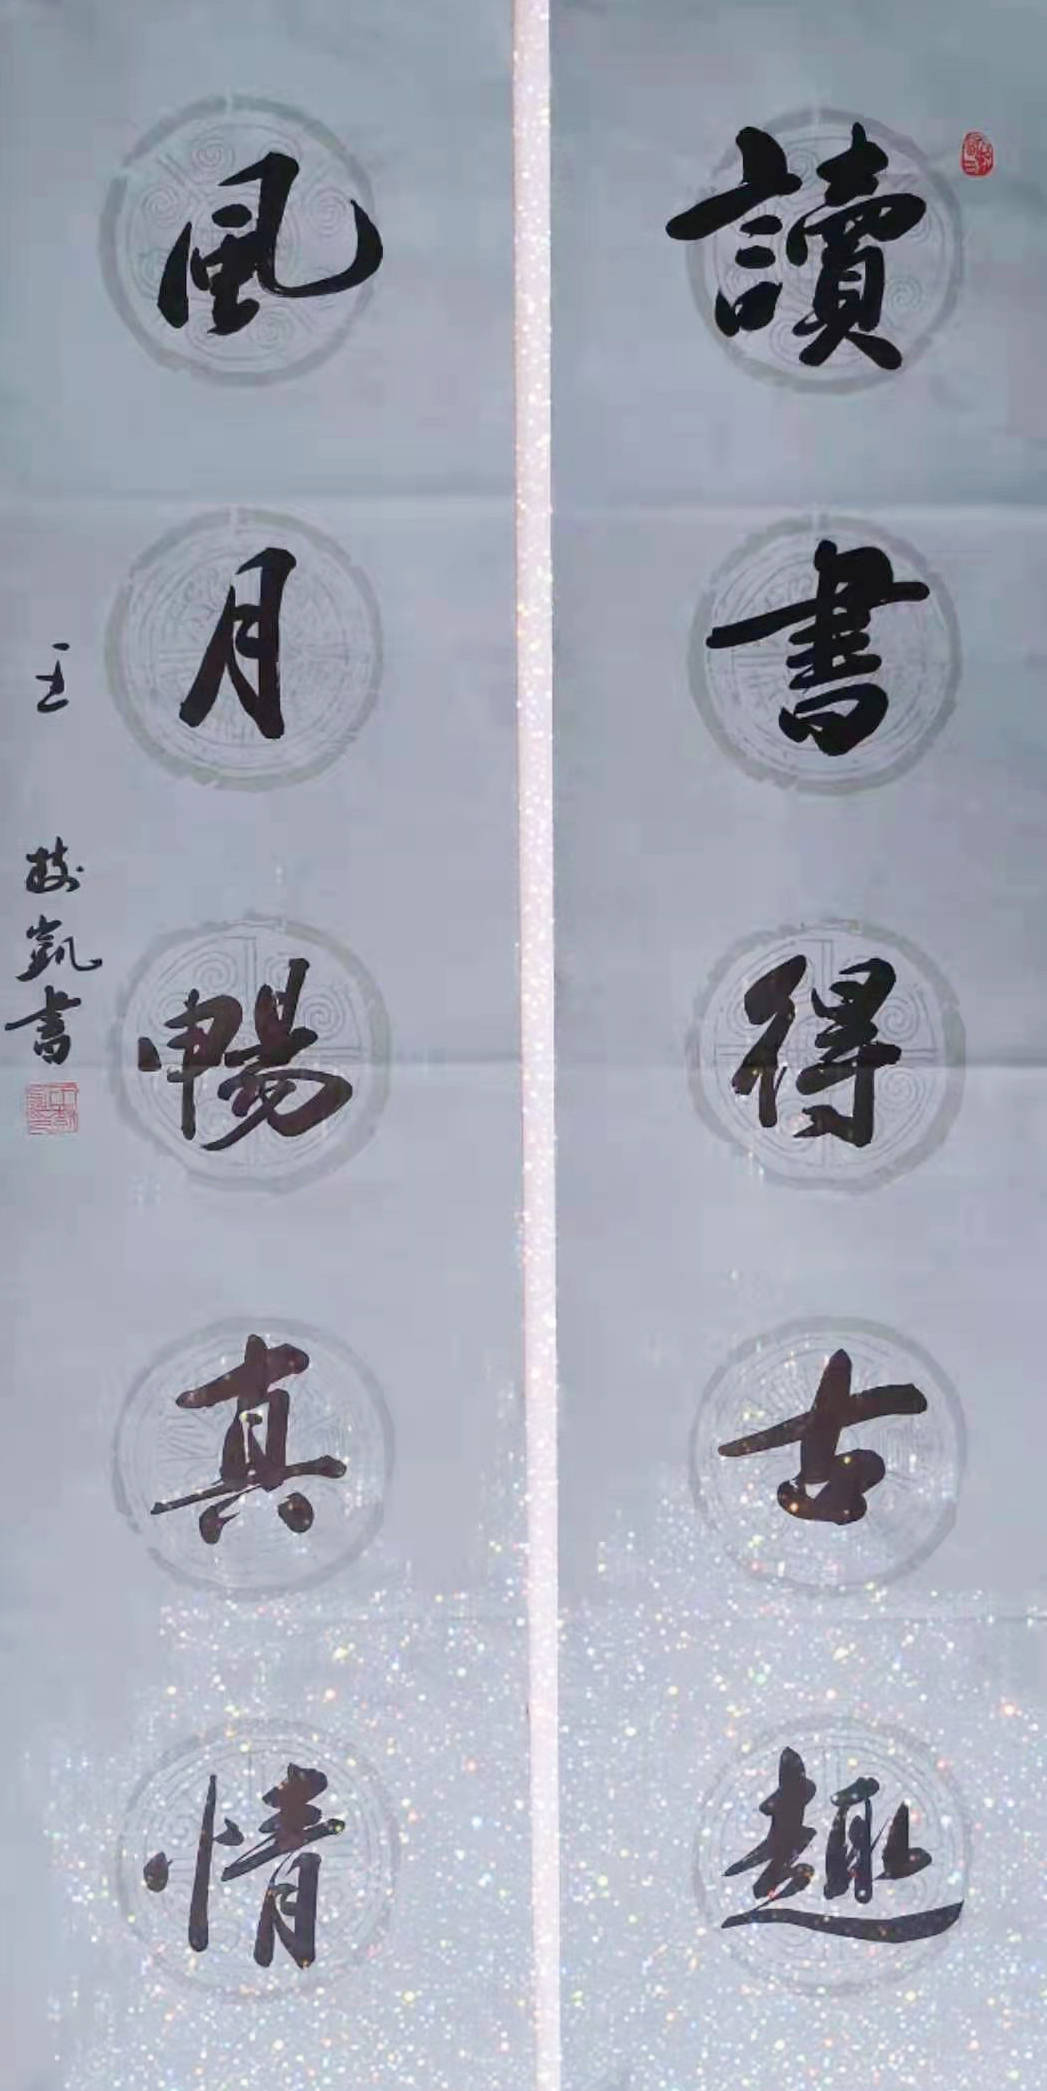 讀書得古趣
風月暢真情
王樹凱書